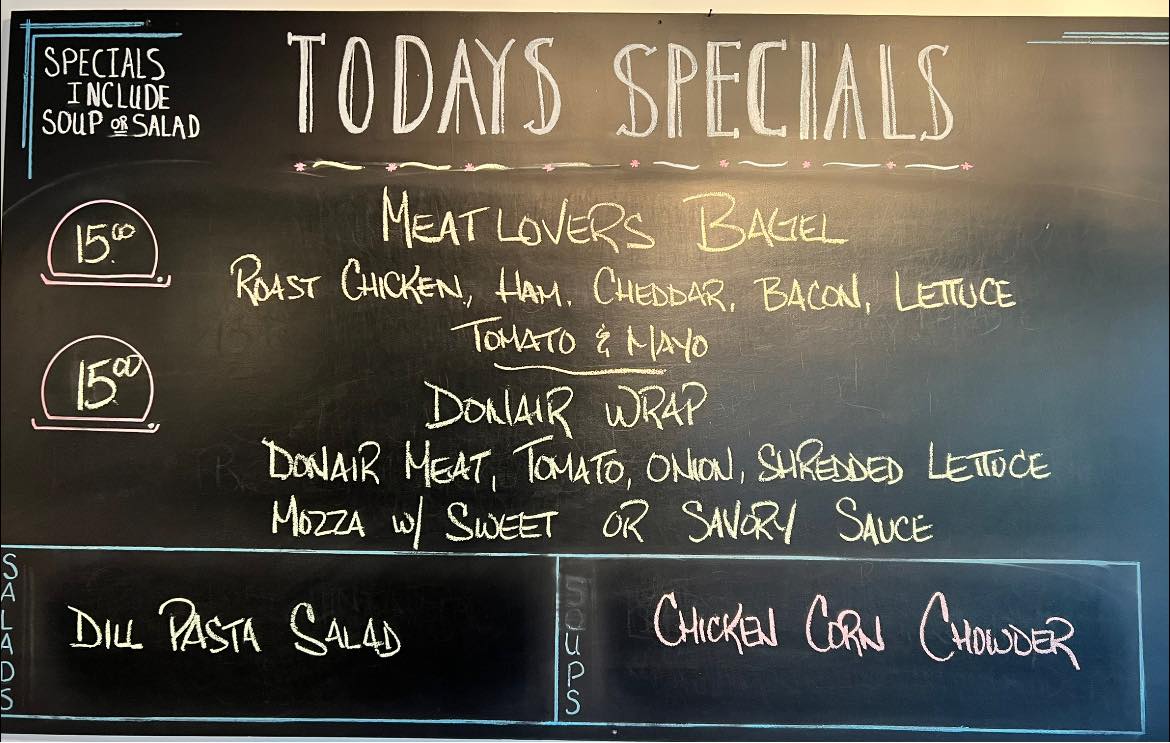 SPECIALS
INCLUDE
SOUP OR SALAD
TODAYS SPECIALS
15.00
MEATLOVERS BAGEL
ROAST CHICKEN, HAM, CHEDDAR, BACON, LETTUCE
TOMATO & MAYO
15.00
DONAIR WRAP
DONAIR MEAT, TOMATO, ONION, SHREDDED LETTUCE
MOZZA W/ SWEET OR SAVORY SAUCE
SALADS
DILL PASTA SALAD
SOUPS
CHICKEN CORN CHOWDER